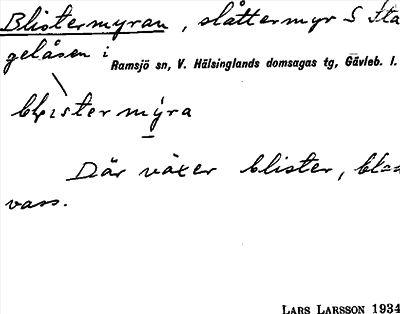 Blistermyran, slåttermyr S Sta
gelåsen i Ramsjö sn, V. Hälsinglands domsagas tg, Gävleb. l.
blistermýra
Där växer blister, blad
vass.
LARS LARSSON 1934